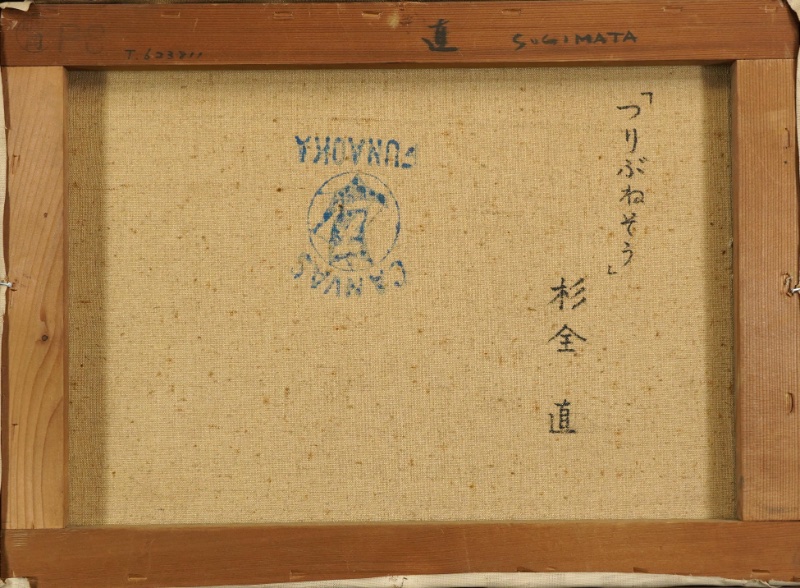 直 SUGIMATA
「つりぶねそう」
杉全 直
FUNAOKA
CANVAS